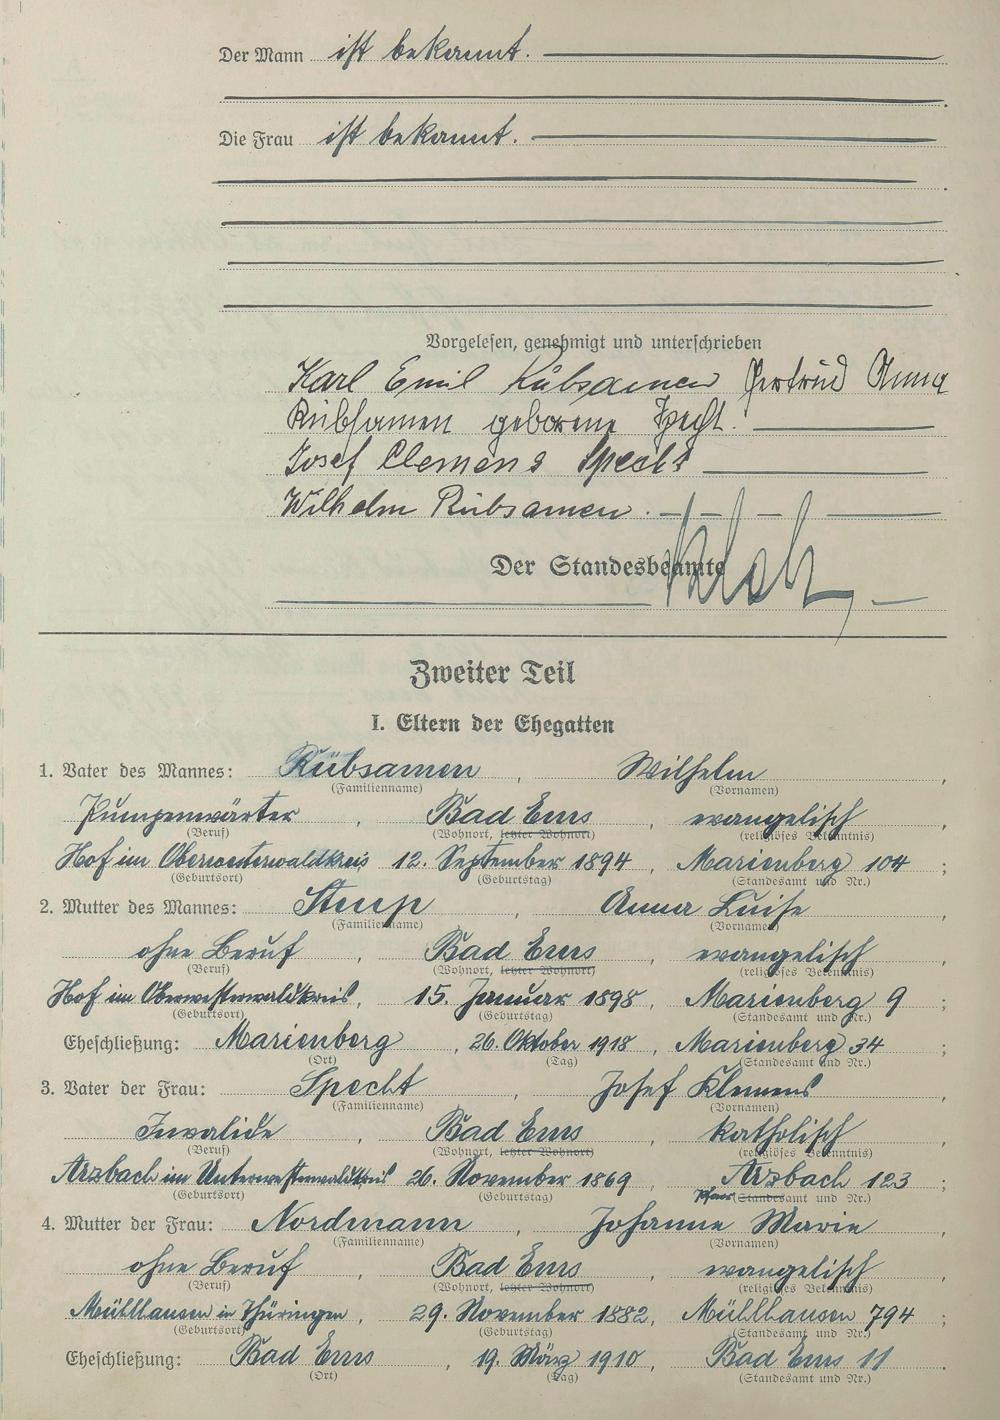 Der Mann ist bekannt.
Die Frau ist bekannt.
Vorgelesen, genehmigt und unterschrieben
Karl Emil Rübsamen Gertrud Anna
Rübsamen geborene Specht.
Josef Clemens Specht
Wilhelm Rübsamen.
Der Standesbeamte
Zweiter Teil
I. Eltern der Ehegatten
1. Vater des Mannes: Rübsamen, Wilhelm,
(Familienname) (Vornamen)
Pumpenwärter, Bad Ems, evangelisch
(Beruf) (Wohnort, letzter Wohnort) (religiöses Bekenntnis)
Hof im Oberwesterwaldkreis, 12. September 1894, Marienberg 104;
(Geburtsort) (Geburtstag) (Standesamt und Nr.)
2. Mutter des Mannes: Steup, Anna Luise,
(Familienname) (Vornamen)
ohne Beruf, Bad Ems, evangelisch
(Beruf) (Wohnort, letzter Wohnort) (religiöses Bekenntnis)
Hof im Oberwesterwaldkreis, 15. Januar 1898, Marienberg 9;
(Geburtsort) (Geburtstag) (Standesamt und Nr.)
Eheschließung: Marienberg, 26. Oktober 1918, Marienberg 34;
(Ort) (Tag) (Standesamt und Nr.)
3. Vater der Frau: Specht, Josef Klemens,
(Familienname) (Vornamen)
Invalide, Bad Ems, katholisch
(Beruf) (Wohnort, letzter Wohnort) (religiöses Bekenntnis)
Arzbach im Unterwesterwaldkreis 26. November 1869, Arzbach 123;
(Geburtsort) (Geburtstag) Pfarr (Standesamt und Nr.)
4. Mutter der Frau: Nordmann, Johanne Marie,
(Familienname) (Vornamen)
ohne Beruf, Bad Ems, evangelisch
(Beruf) (Wohnort, letzter Wohnort) (religiöses Bekenntnis)
Mühlhausen in Thüringen, 29. November 1882, Mühlhausen 794;
(Geburtsort) (Geburtstag) (Standesamt und Nr.)
Eheschließung: Bad Ems, 19. März 1910, Bad Ems 11.
(Ort) (Tag) (Standesamt und Nr.)